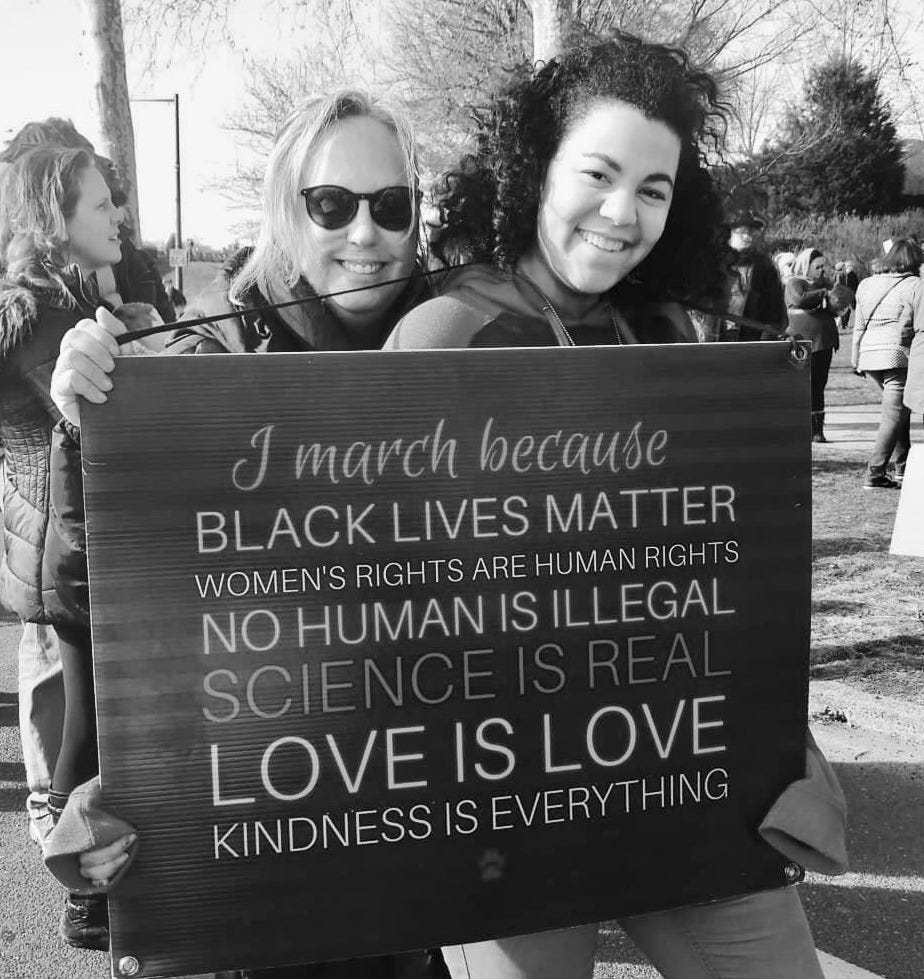 I march because
BLACK LIVES MATTER
WOMEN'S RIGHTS ARE HUMAN RIGHTS
NO HUMAN IS ILLEGAL
SCIENCE IS REAL
LOVE IS LOVE
KINDNESS IS EVERYTHING